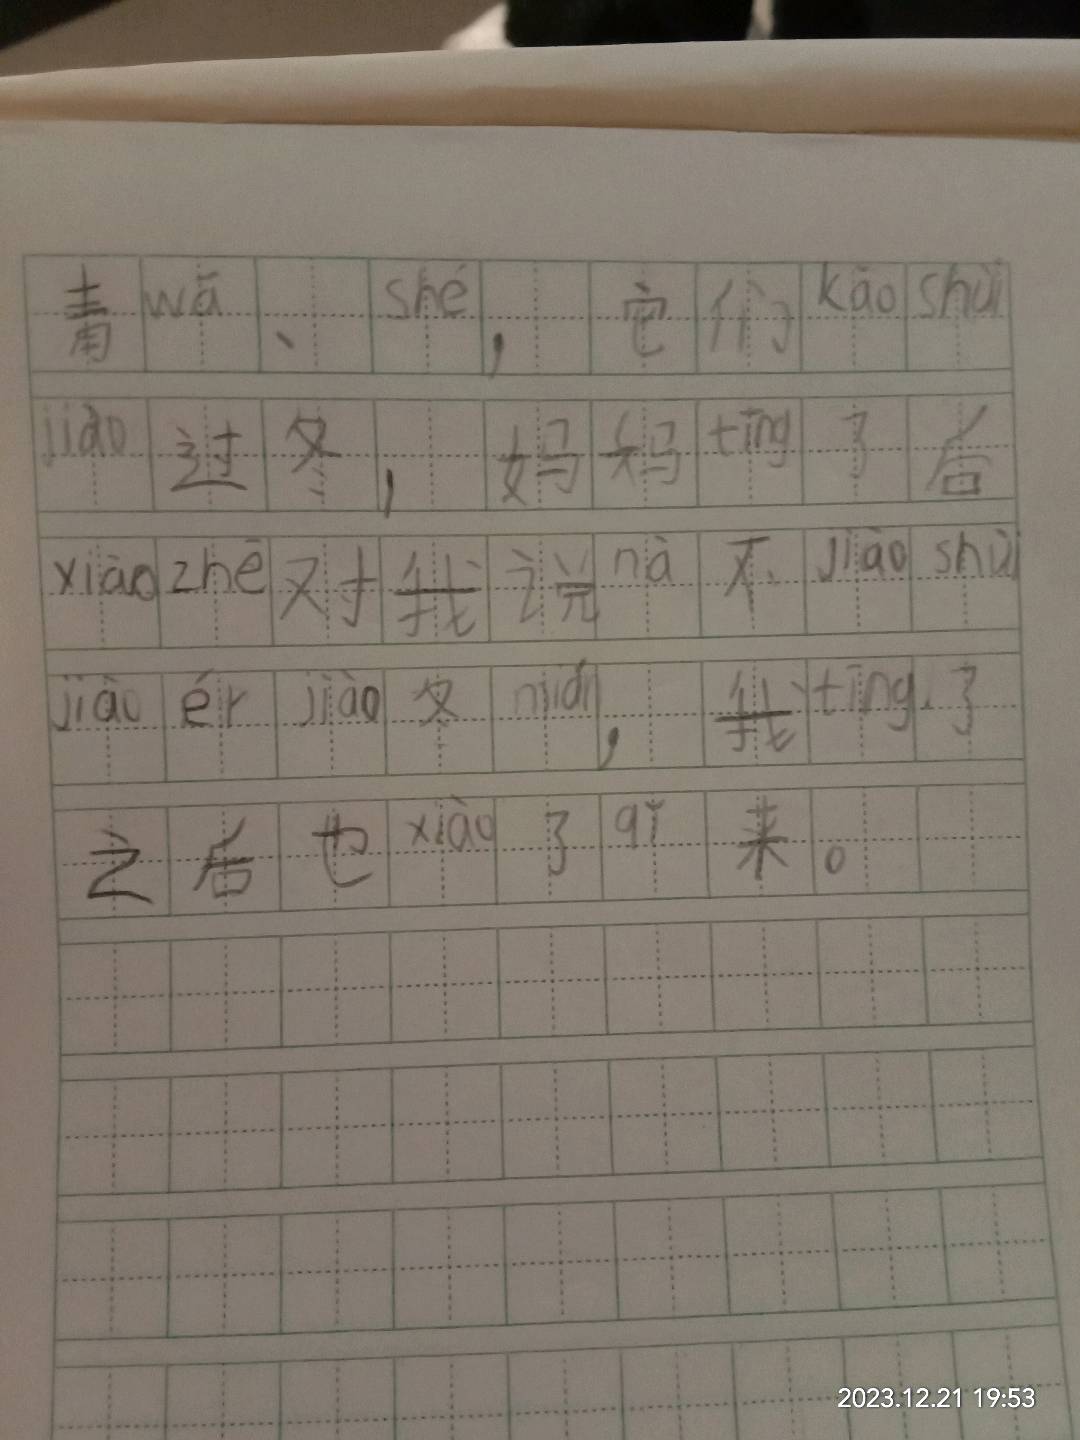 青wā、shé,它们kāoshuì
jiào过冬,妈妈tīng了后
xiàozhē对我说nà不jiàoshuì
jiàoérjiào冬mián,我tīng了
之后也xiào了qǐ来。
2023.12.21 19:53